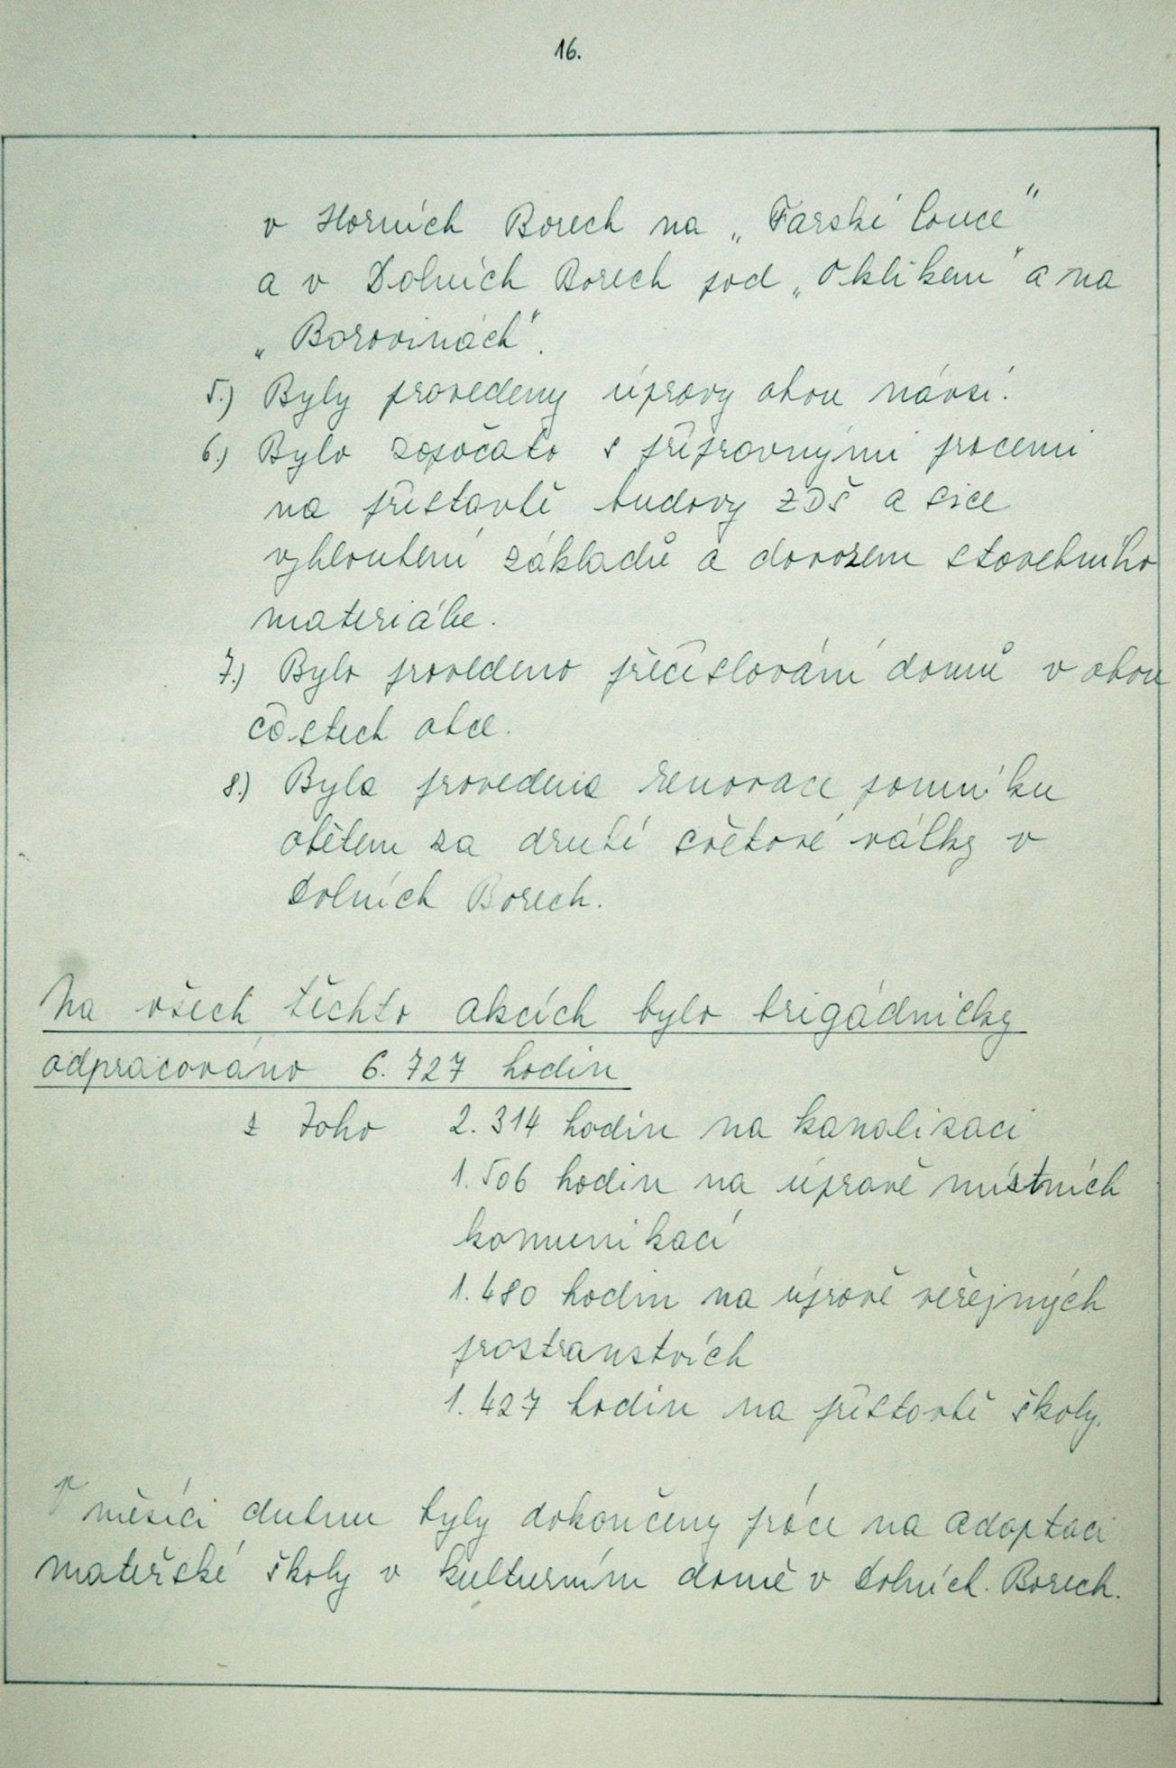 16.
v Horních Borech na „Farské louce"
a v Dolních Borech pod „Oklikem" a na
„Borovinách".
5.) Byly provedeny úpravy obou návsí.
6.) Bylo započato s přípravnými pracemi
na přístavbě budovy ZDŠ a sice
vyhloubení základů a dovozem stavebního
materiálu.
7.) Bylo provedeno přečíslování domů v obou
částech obce.
8.) Byla provedena renovace pomníku
obětem za druhé světové války v
Dolních Borech.
Na všech těchto akcích bylo brigádnicky
odpracováno 6.727 hodin
z toho 2.314 hodin na kanalizaci
1.506 hodin na úpravě místních
komunikací
1.480 hodin na úpravě veřejných
prostranstvích
1.427 hodin na přístavbě školy.
V měsíci dubnu byly dokončeny práce na adaptaci
mateřské školy v kulturním domě v Dolních Borech.